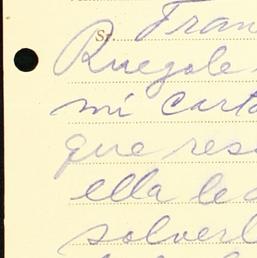 Sr. Fran
Ruegole
mi carta
que res
ella le
solverl